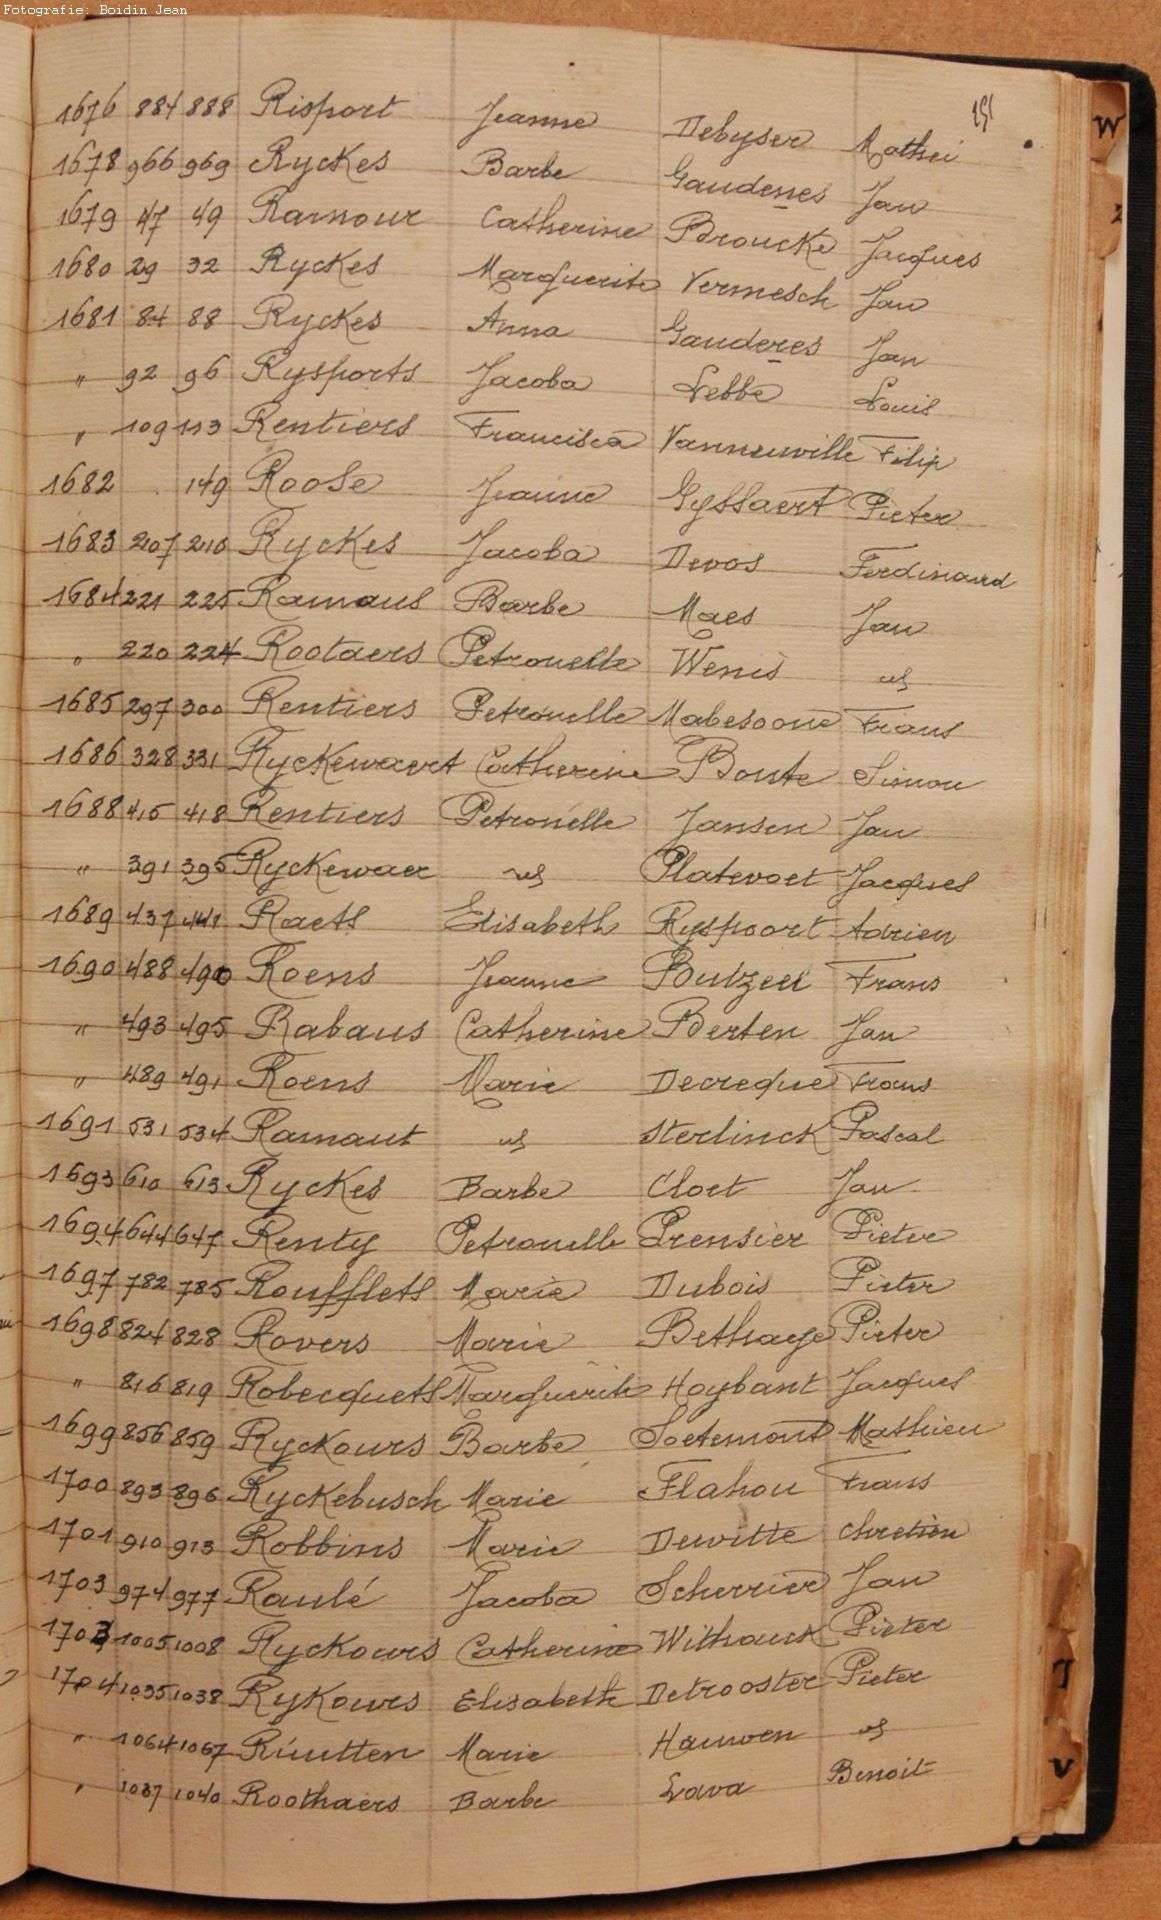 Fotografie: Boidin Jean
151
1676 884 888 Risport Jeanne Debyser Mathei
1678 966 969 Ryckes Barbe Gaudenes Jan
1679 47 49 Ramour Catherine Broucke Jacques
1680 29 32 Ryckes Marguerite Vermesch Jan
1681 84 88 Ryckes Anna Gauderes Jan
" 92 96 Rysports Jacoba Lebbe Louis
" 109 113 Rentiers Francisca Vanneuville Filip
1682 149 Roose Jeanne Gyssaert Pieter
1683 207 210 Ryckes Jacoba Devos Ferdinand
1684 221 225 Ramaus Barbe Maes Jan
" 220 224 Rootaers Petronelle Wenis
1685 297 300 Rentiers Petronelle Mabesoone Frans
1686 328 331 Ryckewaert Catherine Bonte Simon
1688 415 418 Rentiers Petronelle Jansen Jan
" 391 395 Ryckewaer Platevoet Jacques
1689 437 441 Raets Elisabeth Ryspoort Adrien
1690 488 490 Roens Jeanne Frans
" 493 495 Rabaus Catherine Berten Jan
" 489 491 Roens Marie Decreque Frans
1691 531 534 Ramaut Sterlinck Pascal
1693 610 613 Ryckes Barbe Cloet Jan
1694 644 647 Renty Petronelle Prensier Pieter
1697 782 785 Roufflets Marie Dubois Pieter
1698 824 828 Rovers Marie Bethage Pieter
" 816 819 Robecquets Marguerite Hoybant Jacques
1699 856 859 Ryckours Barbe Soetemont Mathieu
1700 893 896 Ryckebusch Marie Flahou Frans
1701 910 913 Robbins Marie Dewitte Chretien
1703 974 977 Raulé Jacoba Scherrier Jan
1703 1005 1008 Ryckours Catherine Withouck Pieter
1704 1035 1038 Rykours Elisabeth Detrooster Pieter
" 1064 1067 Ruutten Marie Hauwen
" 1037 1040 Roothaers Barbe Lava Benoit
W
J
V